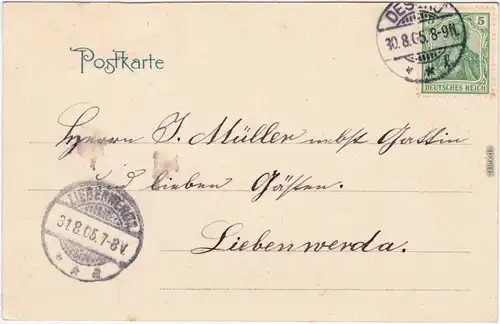 DESSAU
30.8.05.8-9N.
5
DEUTSCHES REICH
Postkarte
Herrn J. Müller nebst Gattin
und lieben Gästen.
LIEBENWERDA
31.8.05.7-8V.
Liebenwerda.